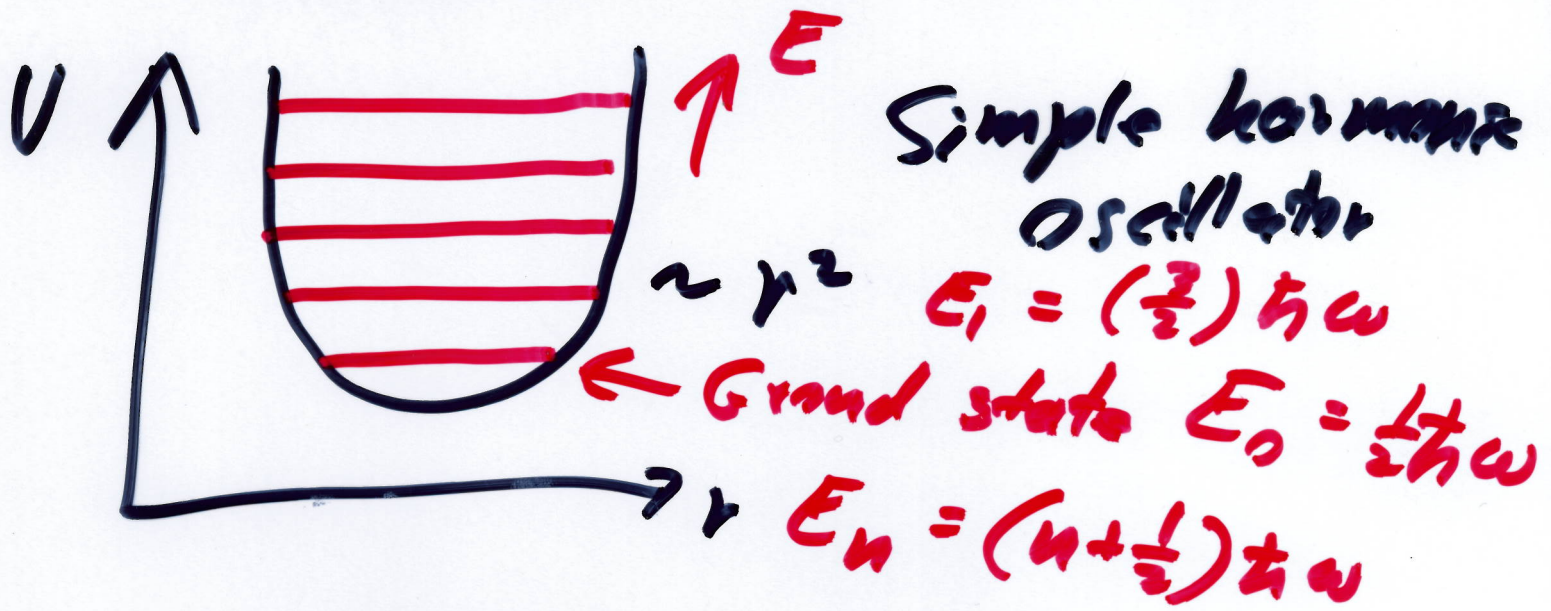 U
E
Simple harmonic
oscillator
~ r²
E₁ = (3/2) ħω
← Ground state E₀ = ½ħω
r
Eₙ = (n+½)ħω